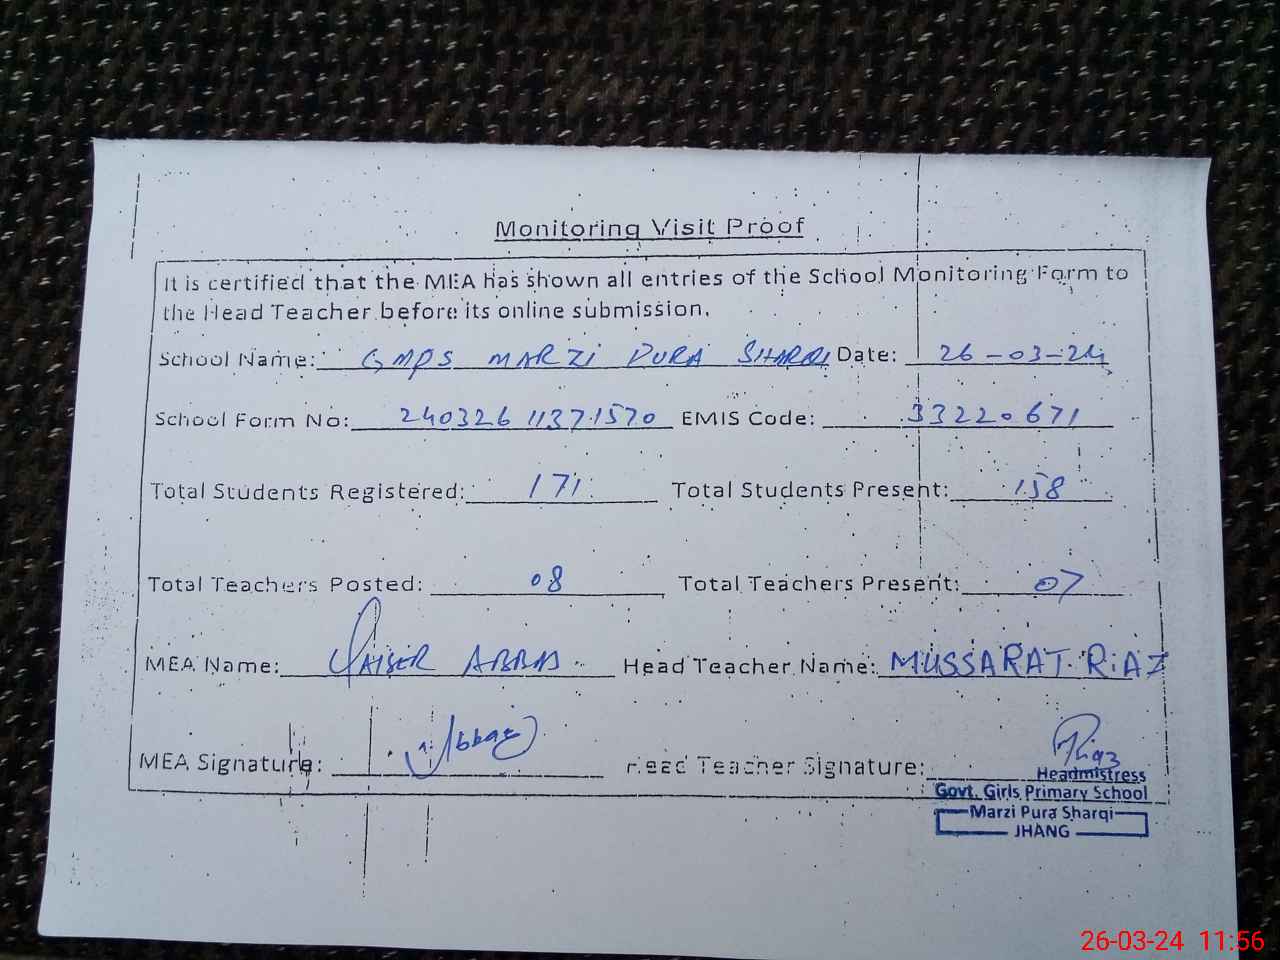 Monitoring Visit Proof
It is certified that the MEA has shown all entries of the School Monitoring Form to
the Head Teacher before its online submission.
School Name: GMPS MARZI PURA SHARQI Date: 26-03-24
School Form No: 240326 1137 1570 EMIS Code: 33220671
Total Students Registered: 171 Total Students Present: 158
Total Teachers Posted: 08 Total Teachers Present: 07
MEA Name: QAISER ABBAS Head Teacher Name: MUSSARAT RIAZ
MEA Signature: Abbas Head Teacher Signature: Riaz
Headmistress
Govt. Girls Primary School
Marzi Pura Sharqi
JHANG
26-03-24 11:56